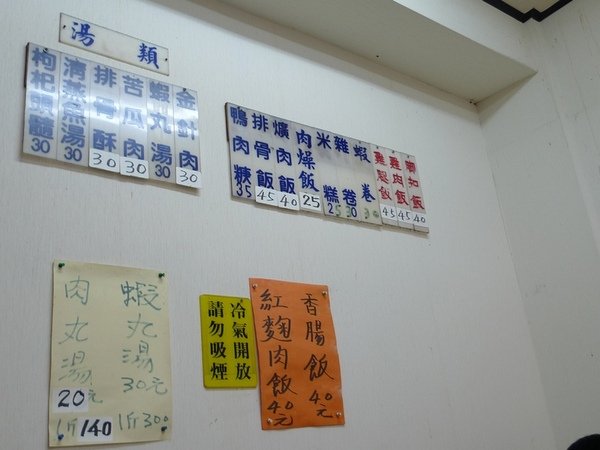 湯類
金針肉 30
蝦丸湯 30
苦瓜肉 30
排骨酥 30
清燕魚湯 30
枸杞頭髓 30
飯 40
雞肉飯 45
雞腿飯 45
蝦卷
雜卷 30
米糕 25
肉燥飯 25
爌肉飯 40
排骨飯 45
鴨肉 35
蝦丸湯 30元
1斤300
肉丸湯 20元
1斤140
冷氣開放
請勿吸煙
香腸飯 40元
紅麴肉飯 40元